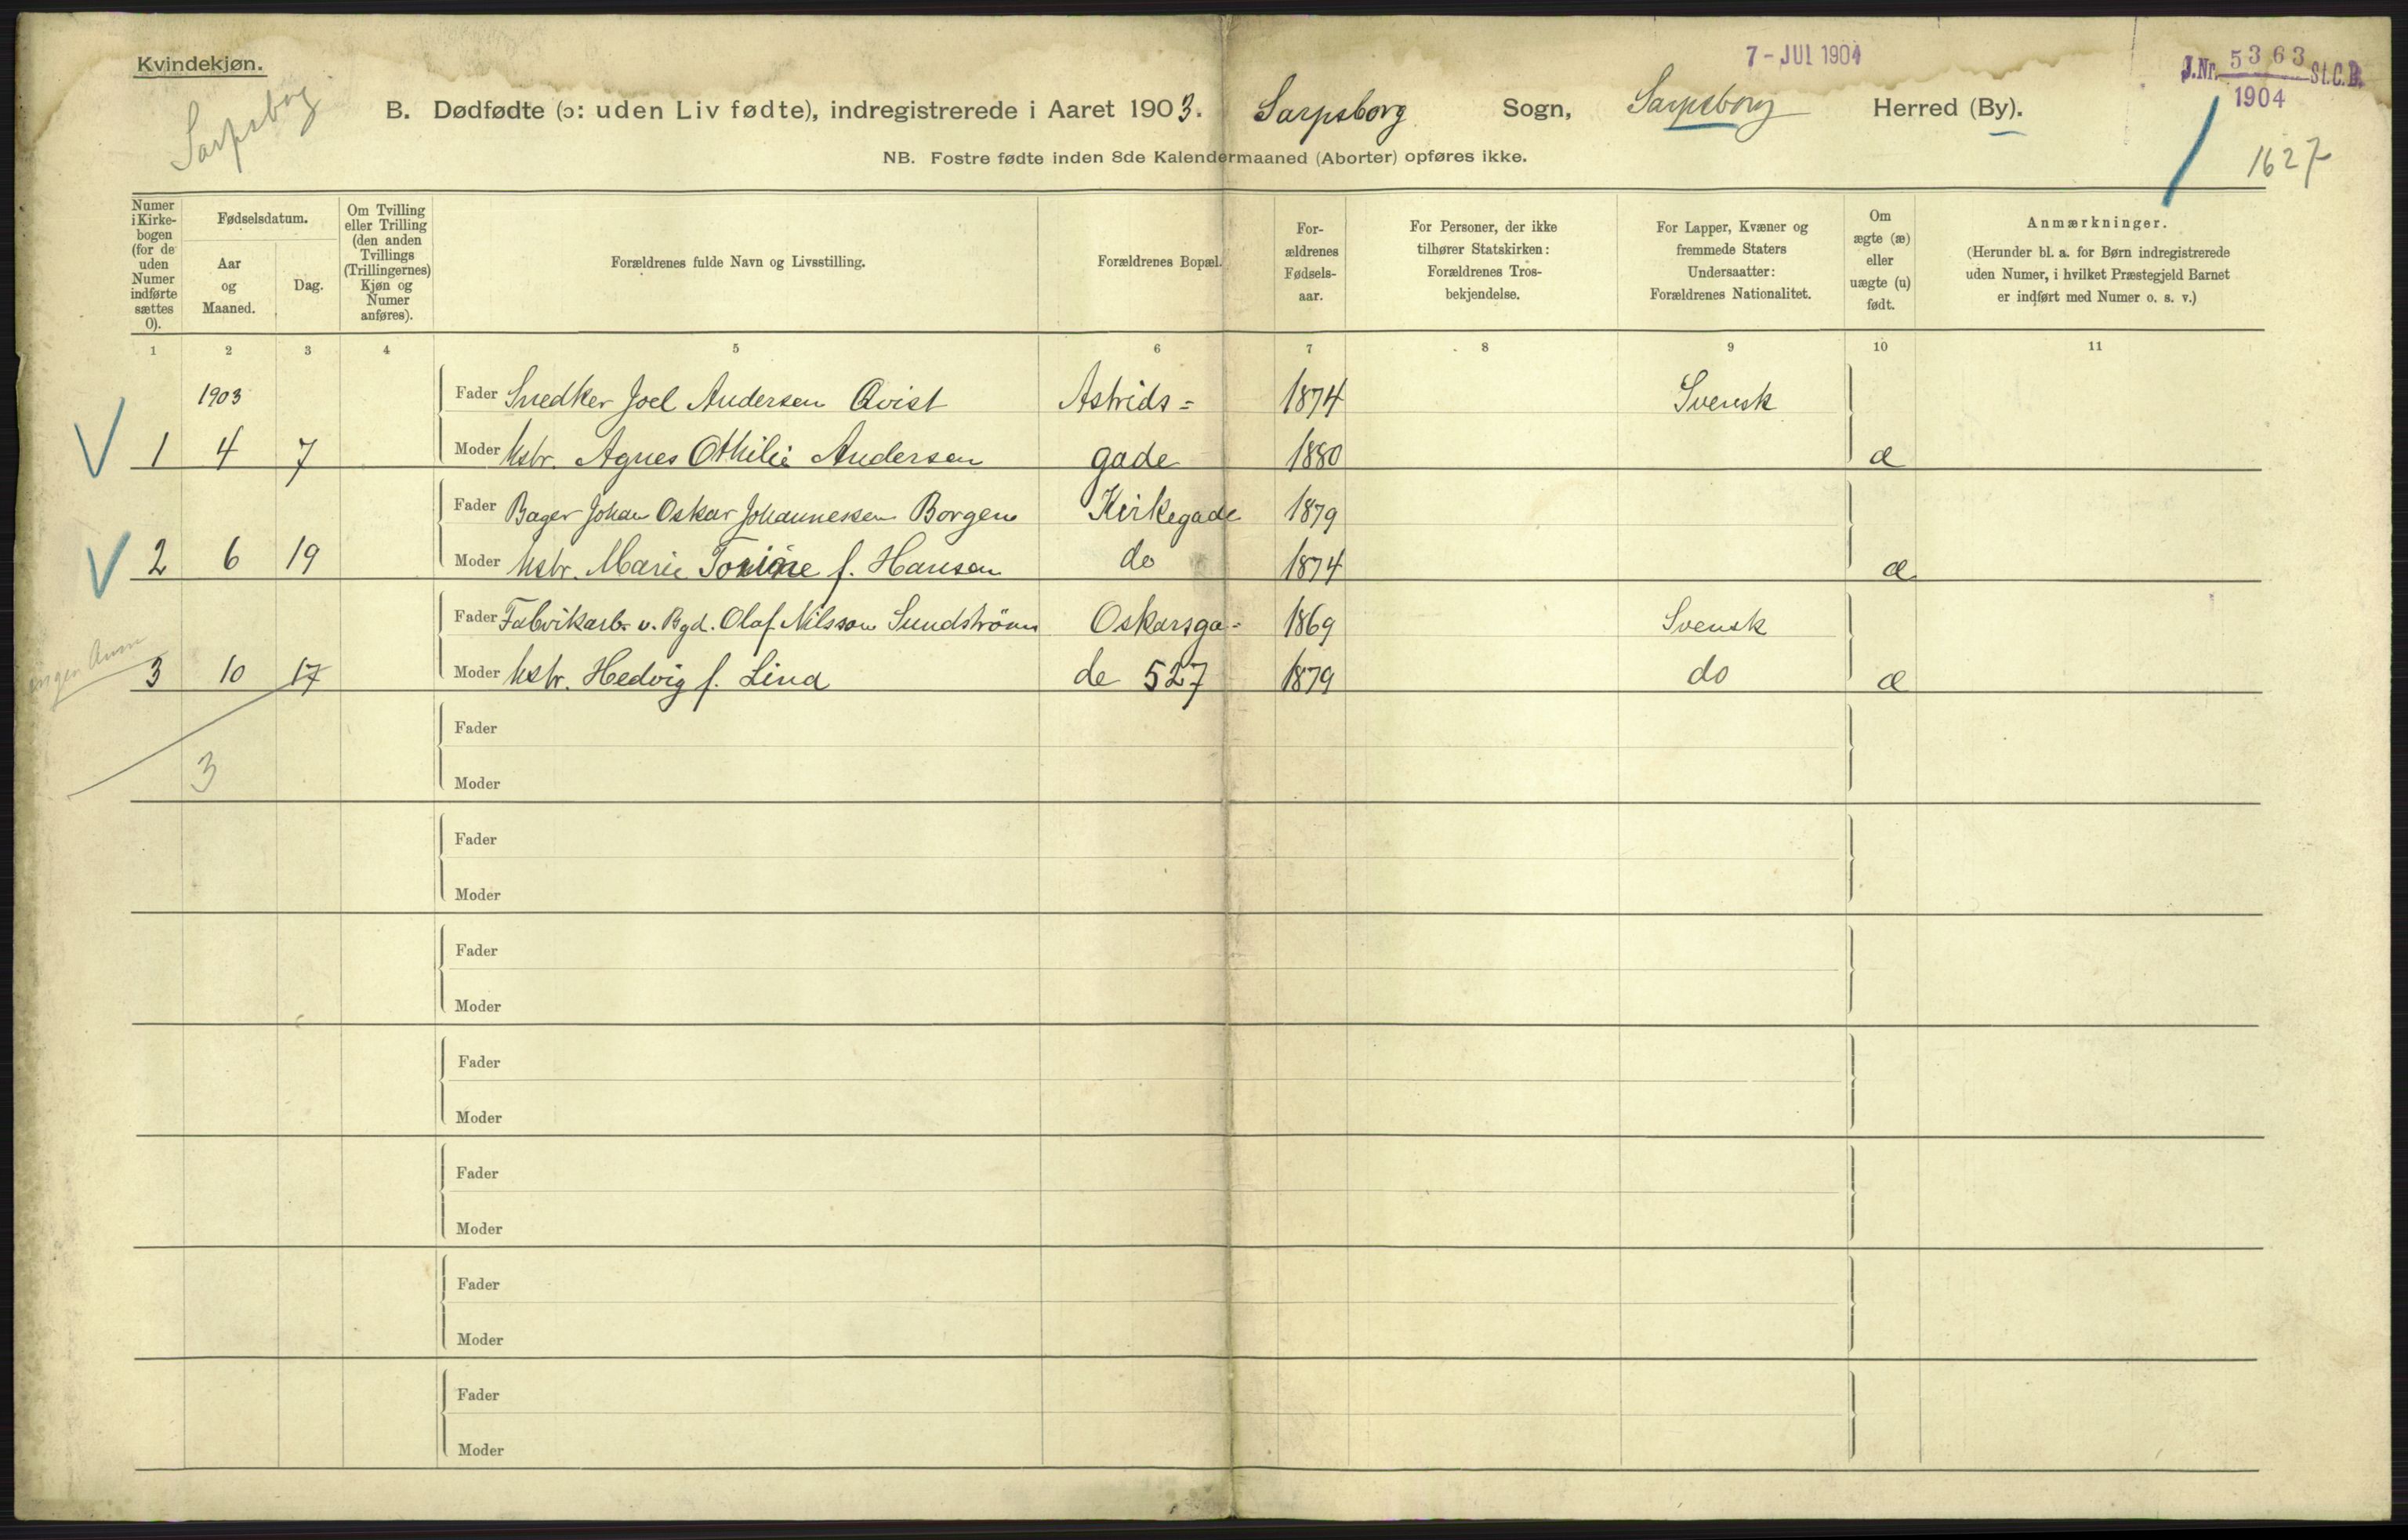 Kvindekjøn.
Sarpsborg
7 - JUL 1904
J.Nr. 5363 St.C.B.
1904
B. Dødfødte (ɔ: uden Liv fødte), indregistrerede i Aaret 1903. Sarpsborg Sogn, Sarpsborg Herred (By).
1627
NB. Fostre fødte inden 8de Kalendermaaned (Aborter) opføres ikke.
Numer
i Kirke-
bogen
(for de
uden
Numer
indførte
sættes
0).
Fødselsdatum.
Aar
og
Maaned.
Dag.
Om Tvilling
eller Trilling
(den anden
Tvillings
(Trillingernes)
Kjøn og
Numer
anføres).
Forældrenes fulde Navn og Livsstilling.
Forældrenes Bopæl.
For-
ældrenes
Fødsels-
aar.
For Personer, der ikke
tilhører Statskirken:
Forældrenes Tros-
bekjendelse.
For Lapper, Kvæner og
fremmede Staters
Undersaatter:
Forældrenes Nationalitet.
Om
ægte (æ)
eller
uægte (u)
født.
Anmærkninger.
(Herunder bl. a. for Børn indregistrerede
uden Numer, i hvilket Præstegjeld Barnet
er indført med Numer o. s. v.)
1 2 3 4 5 6 7 8 9 10 11
1903 Fader Snedker Joel Andersen Qvist Astrids= 1874 Svensk
1 4 7 Moder Hstr. Agnes Othilie Andersen gade 1880 æ
Fader Bager Johan Oskar Johannessen Borgen Kirkegade 1879
2 6 19 Moder Hstr. Marie f. Hansen do 1874 æ
Fader Fabrikarb. v. Bgd. Olaf Nilsson Sundström Oskarsga- 1869 Svensk
ingen Anm
3 10 17 Moder Hstr. Hedvig f. Lind de 527 1879 do æ
Fader
3
Moder
Fader
Moder
Fader
Moder
Fader
Moder
Fader
Moder
Fader
Moder
Fader
Moder